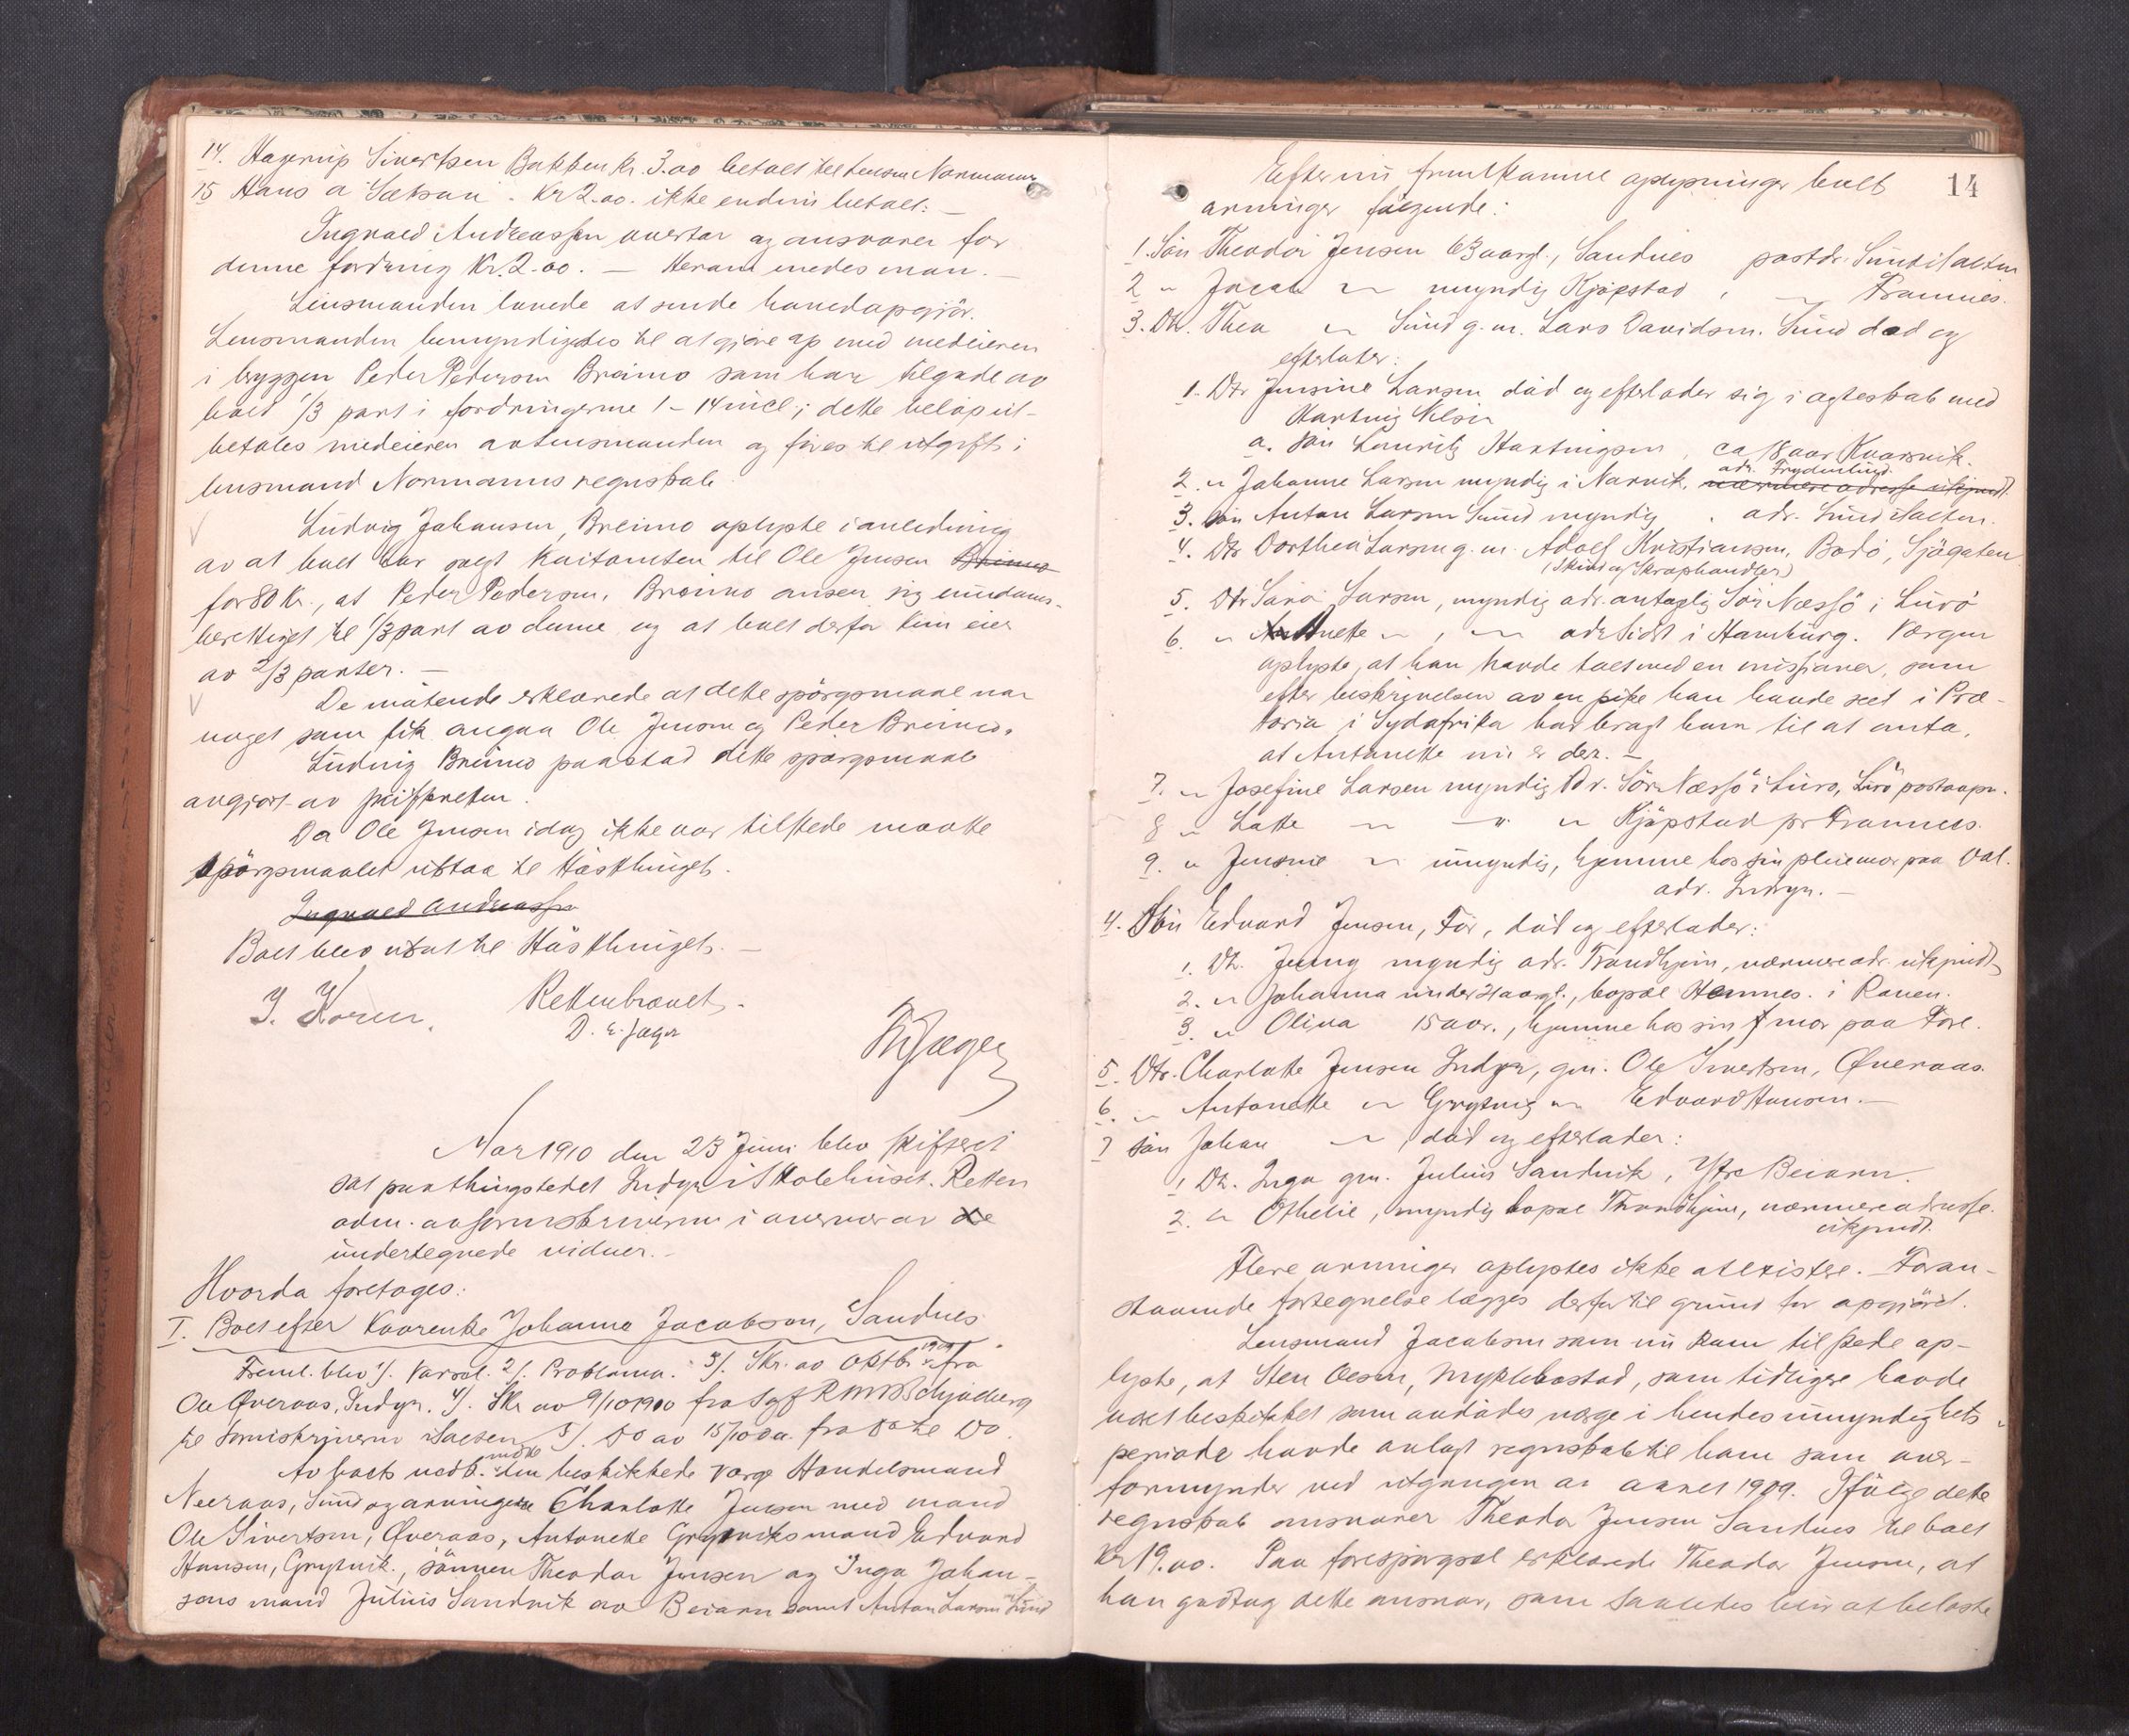 14. Hagerup Sivertsen Bakken kr. 3.00 betalt til lensm Normann
15 Hans a Sætran. Kr 2.00. ikke endnu betalt: —
Ingvald Andreassen overtar og ansvarer for
denne fordring Kr. 2.00. — Herom enedes man. —
Lensmanden lovede at sende hovedopgjör.
Lensmanden bemyndigedes til at gjøre op med medeieren
i bryggen Peder Pedersen Breimo som har tilgode av
boet 1/3 part i fordringerne 1 - 14 incl; dette beløp ut-
betales medeieren av lensmanden og føres til utgift i
lensmand Normanns regnskab
Ludvig Johansen, Breimo oplyste i anledning
av at boet har solgt til Ole Jensen Breimo
for 80 Kr., at Peder Pedersen, Breimo anser sig eiendoms-
berettiget til 1/3 part av denne og at boet derfor kun eier
av 2/3 parter. —
De mötende erklærede at dette spörgsmaal var
noget som fik angaa Ole Jensen og Peder Breimo.
Ludvig Breimo paastod dette spørgsmaal
avgjort av skifteretten.
Da Ole Jensen idag ikke var tilstede maatte
spörgsmaalet utstaa til Høstthinget.
Ingvald Andreassen
Boet blev utsat til Høstthinget. —
J. Koren. Retten hævet.
D. E. Jæger
Jæger
Aar 1910 den 23 Juni blev skifteret
sat paa thingstedet Indyr i Skolehuset. Retten
adm. av sorenskriveren i overvær av de
undertegnede vidner. —
Hvorda foretoges:
I. Boet efter Kaarenke Johanna Jacobson, Sandnes
Freml. blev 1/. Varsel. 2/. Proklama. 3/. Skr. av Oktbr 1909 fra
Ole Øveraas, Indyr. 4/. Skr av 9/10 1900 fra Sgf Schjølberg
til Sorenskriveren i Salten 5/. Do av 15/10 d.a. fra Do til Do.
Av boets vedk. mødte den beskikkede værge Handelsmand
Neeraas, Sund og arvingene Charlotte Jensen med mand
Ole Sivertsen, Øveraas, Antonette Grytviks mand Edvard
Hansen, Grytvik., sönnen Theodor Jensen og Inga Johan-
sens mand Julius Sandvik av Beiarn samt Anton Larsen Sund
14
Efter nu fremkomne oplysninger holt
arvinger følgende:
1. Sön Theodor Jensen 63 aargl., Sandnes postdr. Sund i Salten
2 " Jacob " myndig Kjøpstad, " Framnes.
3. Dtr. Thea " Sund g.m. Lars Davidsen. Sund død og
efterlater:
1. Dtr Jensine Larsen død og efterlader sig i ægteskab med
Hartvig Nilsen
a. Sön Lauritz Hartvigsen, ca 18 aar Kvarsvik.
adr. Frydenlund.
2. " Johanne Larsen myndig i Narvik. nærmere adresse ukjendt.
3. Sön Anton Larsen Sund myndig . adr. Sund i Salten.
4. Dtr Dorthea Larsen g.m. Adolf Kristiansen, Bodö, Sjögaten
(Skind og Skraphandler)
5. Dtr Sara Larsen, myndig adr. antagelig Sör Nessö i Lurö
6. " Antonette " , " adr. sidst i Hamburg. Værgen
oplyste, at han havde talt med en misjonær, som
efter beskrivelsen av en pike han havde set i Præ-
toria i Sydafrika har bragt ham til at anta,
at Antonette nu er der. —
7. " Josefine Larsen myndig Adr. Sör Nessö i Lurö, Lurö postaapn.
8 " Lotte " " " Kjøpstad pr Framnes.
9. " Jensine " umyndig, hjemme hos sin pleiemor paa Val.
adr. Indyr. —
4. Sön Edvard Jensen, För, död og efterlader:
1. Dtr. Jenny myndig adr. Trondhjem, nærmere adr. ukjendt
2. " Johanna under 21 aargl., bopæl Hemnes. i Ranen.
3. " Olina 15 aar., hjemme hos sin mor paa Fore.
5. Dtr. Charlotte Jensen Indyr, gm. Ole Sivertsen, Øveraas.
6. " Antonette " Grytvig " Edvard Hansen. —
7 Sön Johan " död og efterlader:
1 Dtr. Inga gm. Julius Sandvik, Ytre Beiarn.
2. " Othelie, myndig bopæl Throndhjem, nærmere adresse.
ukjendt.
Flere arvinger oplystes ikke at existere. — Foran-
staaende fortegnelse lægges derfor til grund for opgjöret.
Lensmand Jacobsen som nu kom tilstede op-
lyste, at Sten Olsen, Myklebostad, som tidligere havde
været beskikket som avdødes værge i hendes umyndighets
periode havde avlagt regnskab til ham som over-
formynder ved utgangen av aaret 1909. Ifölge dette
regnskab ansvarer Theodor Jensen Sandnes til boet
Kr 19.00. Paa forespörgsel erklærede Theodor Jensen, at
han godtog dette ansvar, som saaledes blir at belaste